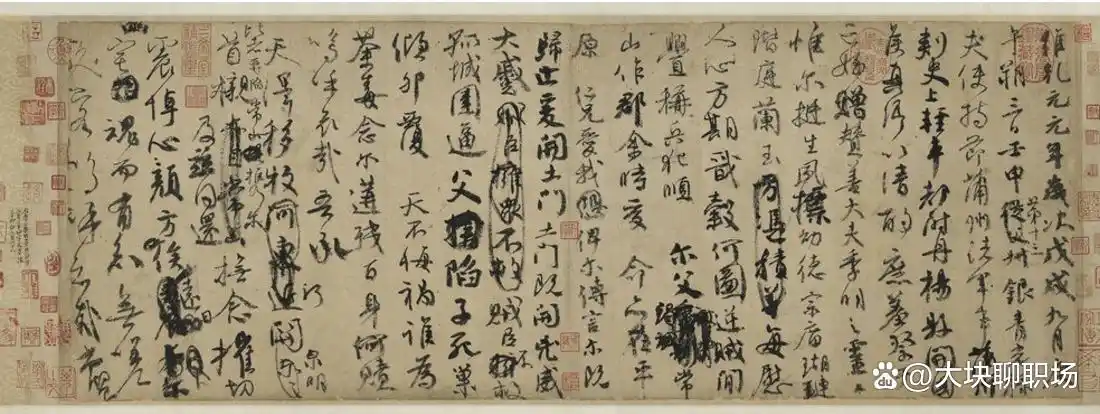 維乾元元年歲次戊戌九月庚
午朔三日壬申第十三叔銀青光祿
夫使持節蒲州諸軍事蒲州
刺史上輕車都尉丹楊縣開國
侯真卿以清酌庶羞祭于
亡姪贈贊善大夫季明之靈曰
惟爾挺生夙標幼德宗廟瑚璉
階庭蘭玉方憑積善每慰
人心方期戩穀何圖逆賊間
釁稱兵犯順爾父竭誠常
山作郡余時受命亦在平
原仁兄愛我俾爾傳言爾既
歸止爰開土門土門既開兇威
大蹙賊臣擁衆不救賊臣不救
孤城圍逼父陷子死巢
傾卵覆天不悔禍誰為
荼毒念爾遘殘百身何贖
嗚乎哀哉吾承
天澤移牧河東近河關泉明
比者再陷常山攜爾
首櫬及茲同還撫念摧切
震悼心顏方俟遠日
宅魂而有知無嗟
久客嗚呼哀哉尚饗
@大块聊职场